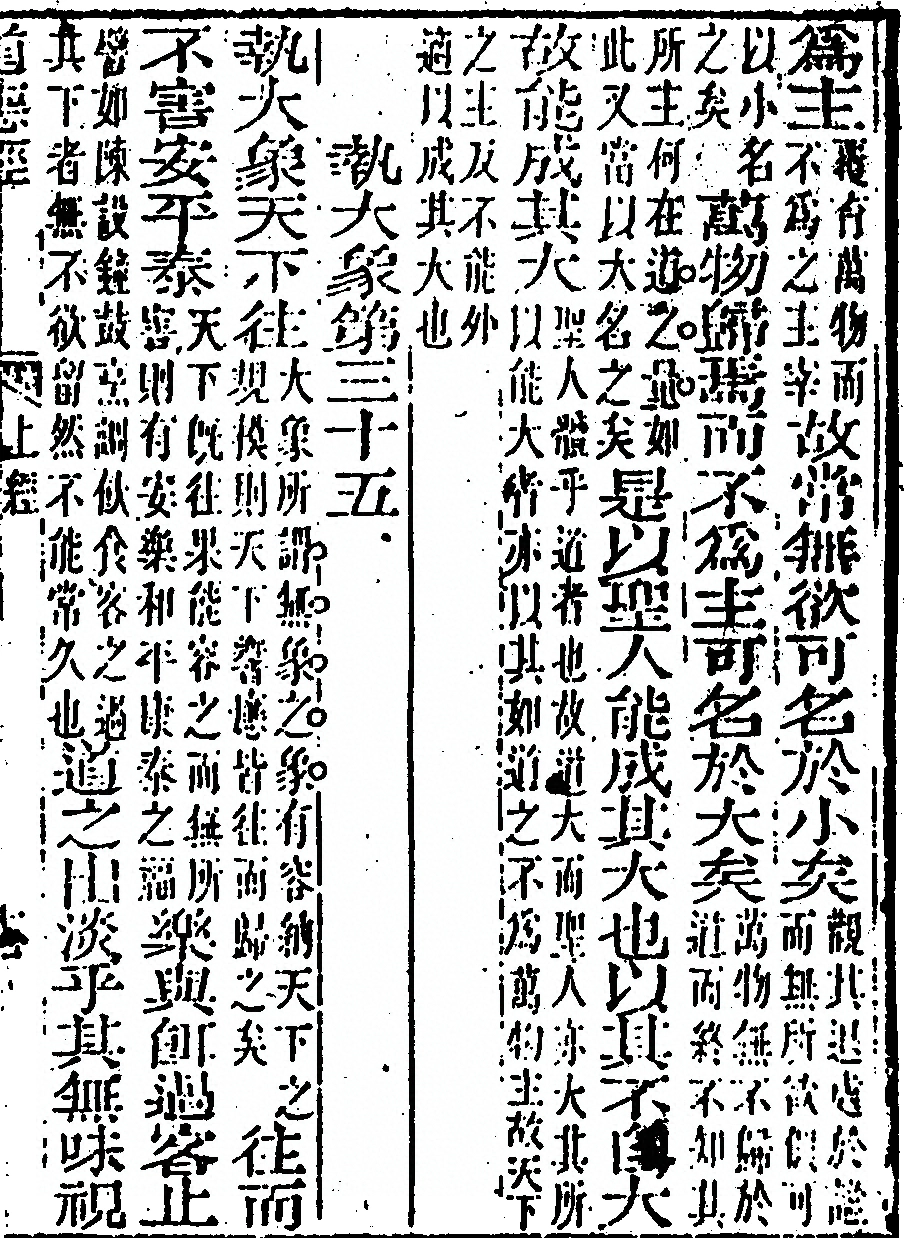 爲主雖有萬物而不爲之主宰故常無欲可名於小矣觀其退處於謐而無所欲似可
以小名之矣萬物歸焉而不爲主可名於大矣萬物無不歸於道而終不知其
所主何在道之量如此又當以大名之矣是以聖人能成其大也以其不自大
故能成其大聖人體乎道者也故道大而聖人亦大其所以能大者亦以其如道之不爲萬物主故天下
之主及不能外適以成其大也
執大象第三十五
執大象天下往大象所謂無象之象有容納天下之規模則天下響應皆往而歸之矣往而
不害安平泰天下旣往果能容之而無所害則有安樂和平康泰之福樂與餌過客止
譬如陳設鐘鼓烹調飲食客之過其下者無不欲留然不能常久也道之出淡乎其無味視
道德經 上經